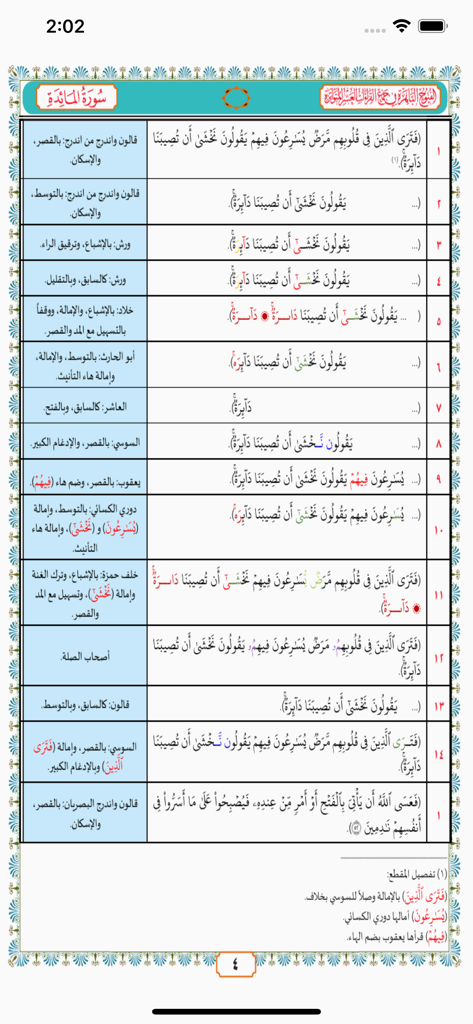 2:02
سُورَةُ المَائِدَةِ
١
(فَتَرَى ٱلَّذِينَ فِى قُلُوبِهِم مَّرَضٌ يُسَٰرِعُونَ فِيهِمْ يَقُولُونَ نَخْشَىٰٓ أَن تُصِيبَنَا
دَآئِرَةٌ).(١)
قالون واندرج من اندرج: بالقصر،
والإسكان.
٢
(... يَقُولُونَ نَخْشَىٰٓ أَن تُصِيبَنَا دَآئِرَةٌ).
قالون واندرج من اندرج: بالتوسط،
والإسكان.
٣
(... يَقُولُونَ نَخْشَىٰٓ أَن تُصِيبَنَا دَآئِرَةٌ).
ورش: بالإشباع، وترقيق الراء.
٤
(... يَقُولُونَ نَخْشَىٰٓ أَن تُصِيبَنَا دَآئِرَةٌ).
ورش: كالسابق، وبالتقليل.
٥
(... يَقُولُونَ نَخْشَىٰٓ أَن تُصِيبَنَا دَآئِرَةٌ ۞ دَآئِرَةٌ).
خلاد: بالإشباع، والإمالة، ووقفاً
بالتسهيل مع المد والقصر.
٦
(... يَقُولُونَ نَخْشَىٰٓ أَن تُصِيبَنَا دَآئِرَةٌ).
أبو الحارث: بالتوسط، والإمالة،
وإمالة هاء التأنيث.
٧
(... دَآئِرَةٌ).
العاشر: كالسابق، وبالفتح.
٨
(... يَقُولُون نَّخْشَىٰٓ أَن تُصِيبَنَا دَآئِرَةٌ).
السوسي: بالقصر، والإدغام الكبير.
٩
(... يُسَٰرِعُونَ فِيهُمْ يَقُولُونَ نَخْشَىٰٓ أَن تُصِيبَنَا دَآئِرَةٌ).
يعقوب: بالقصر، وضم هاء (فِيهُمْ).
١٠
(... يُسَٰرِعُونَ فِيهِمْ يَقُولُونَ نَخْشَىٰٓ أَن تُصِيبَنَا دَآئِرَةٌ).
دوري الكسائي: بالتوسط، وإمالة
(يُسَٰرِعُونَ) و (نَخْشَىٰٓ)، وإمالة هاء
التأنيث.
١١
(فَتَرَى ٱلَّذِينَ فِى قُلُوبِهِم مَّرَضٌ يُسَٰرِعُونَ فِيهِمْ يَقُولُونَ نَخْشَىٰٓ أَن تُصِيبَنَا دَآئِرَةٌ
۞ دَآئِرَةٌ).
خلف حمزة: بالإشباع، وترك الغنة
وإمالة (نَخْشَىٰٓ)، وتسهيل مع المد
والقصر.
١٢
(فَتَرَى ٱلَّذِينَ فِى قُلُوبِهِمُۥ مَّرَضٌ يُسَٰرِعُونَ فِيهِمُۥ يَقُولُونَ نَخْشَىٰٓ أَن تُصِيبَنَا
دَآئِرَةٌ).
أصحاب الصلة.
١٣
(... يَقُولُونَ نَخْشَىٰٓ أَن تُصِيبَنَا دَآئِرَةٌ).
قالون: كالسابق، وبالتوسط.
١٤
(فَتَرَى ٱلَّذِينَ فِى قُلُوبِهِم مَّرَضٌ يُسَٰرِعُونَ فِيهِمْ يَقُولُون نَّخْشَىٰٓ أَن تُصِيبَنَا
دَآئِرَةٌ).
السوسي: بالقصر، وإمالة (فَتَرَى
ٱلَّذِينَ) وبالإدغام الكبير.
١
(فَعَسَى ٱللَّهُ أَن يَأْتِىَ بِٱلْفَتْحِ أَوْ أَمْرٍ مِّنْ عِندِهِۦ فَيُصْبِحُوا۟ عَلَىٰ مَآ أَسَرُّوا۟ فِىٓ
أَنفُسِهِمْ نَٰدِمِينَ ٥٢).
قالون واندرج البصريان: بالقصر،
والإسكان.
(١) تفصيل المقطع:
(فَتَرَى ٱلَّذِينَ) بالإمالة وصلاً للسوسي بخلاف.
(يُسَٰرِعُونَ) أمالها دوري الكسائي.
(فِيهُمْ) قرأها يعقوب بضم الهاء.
٤